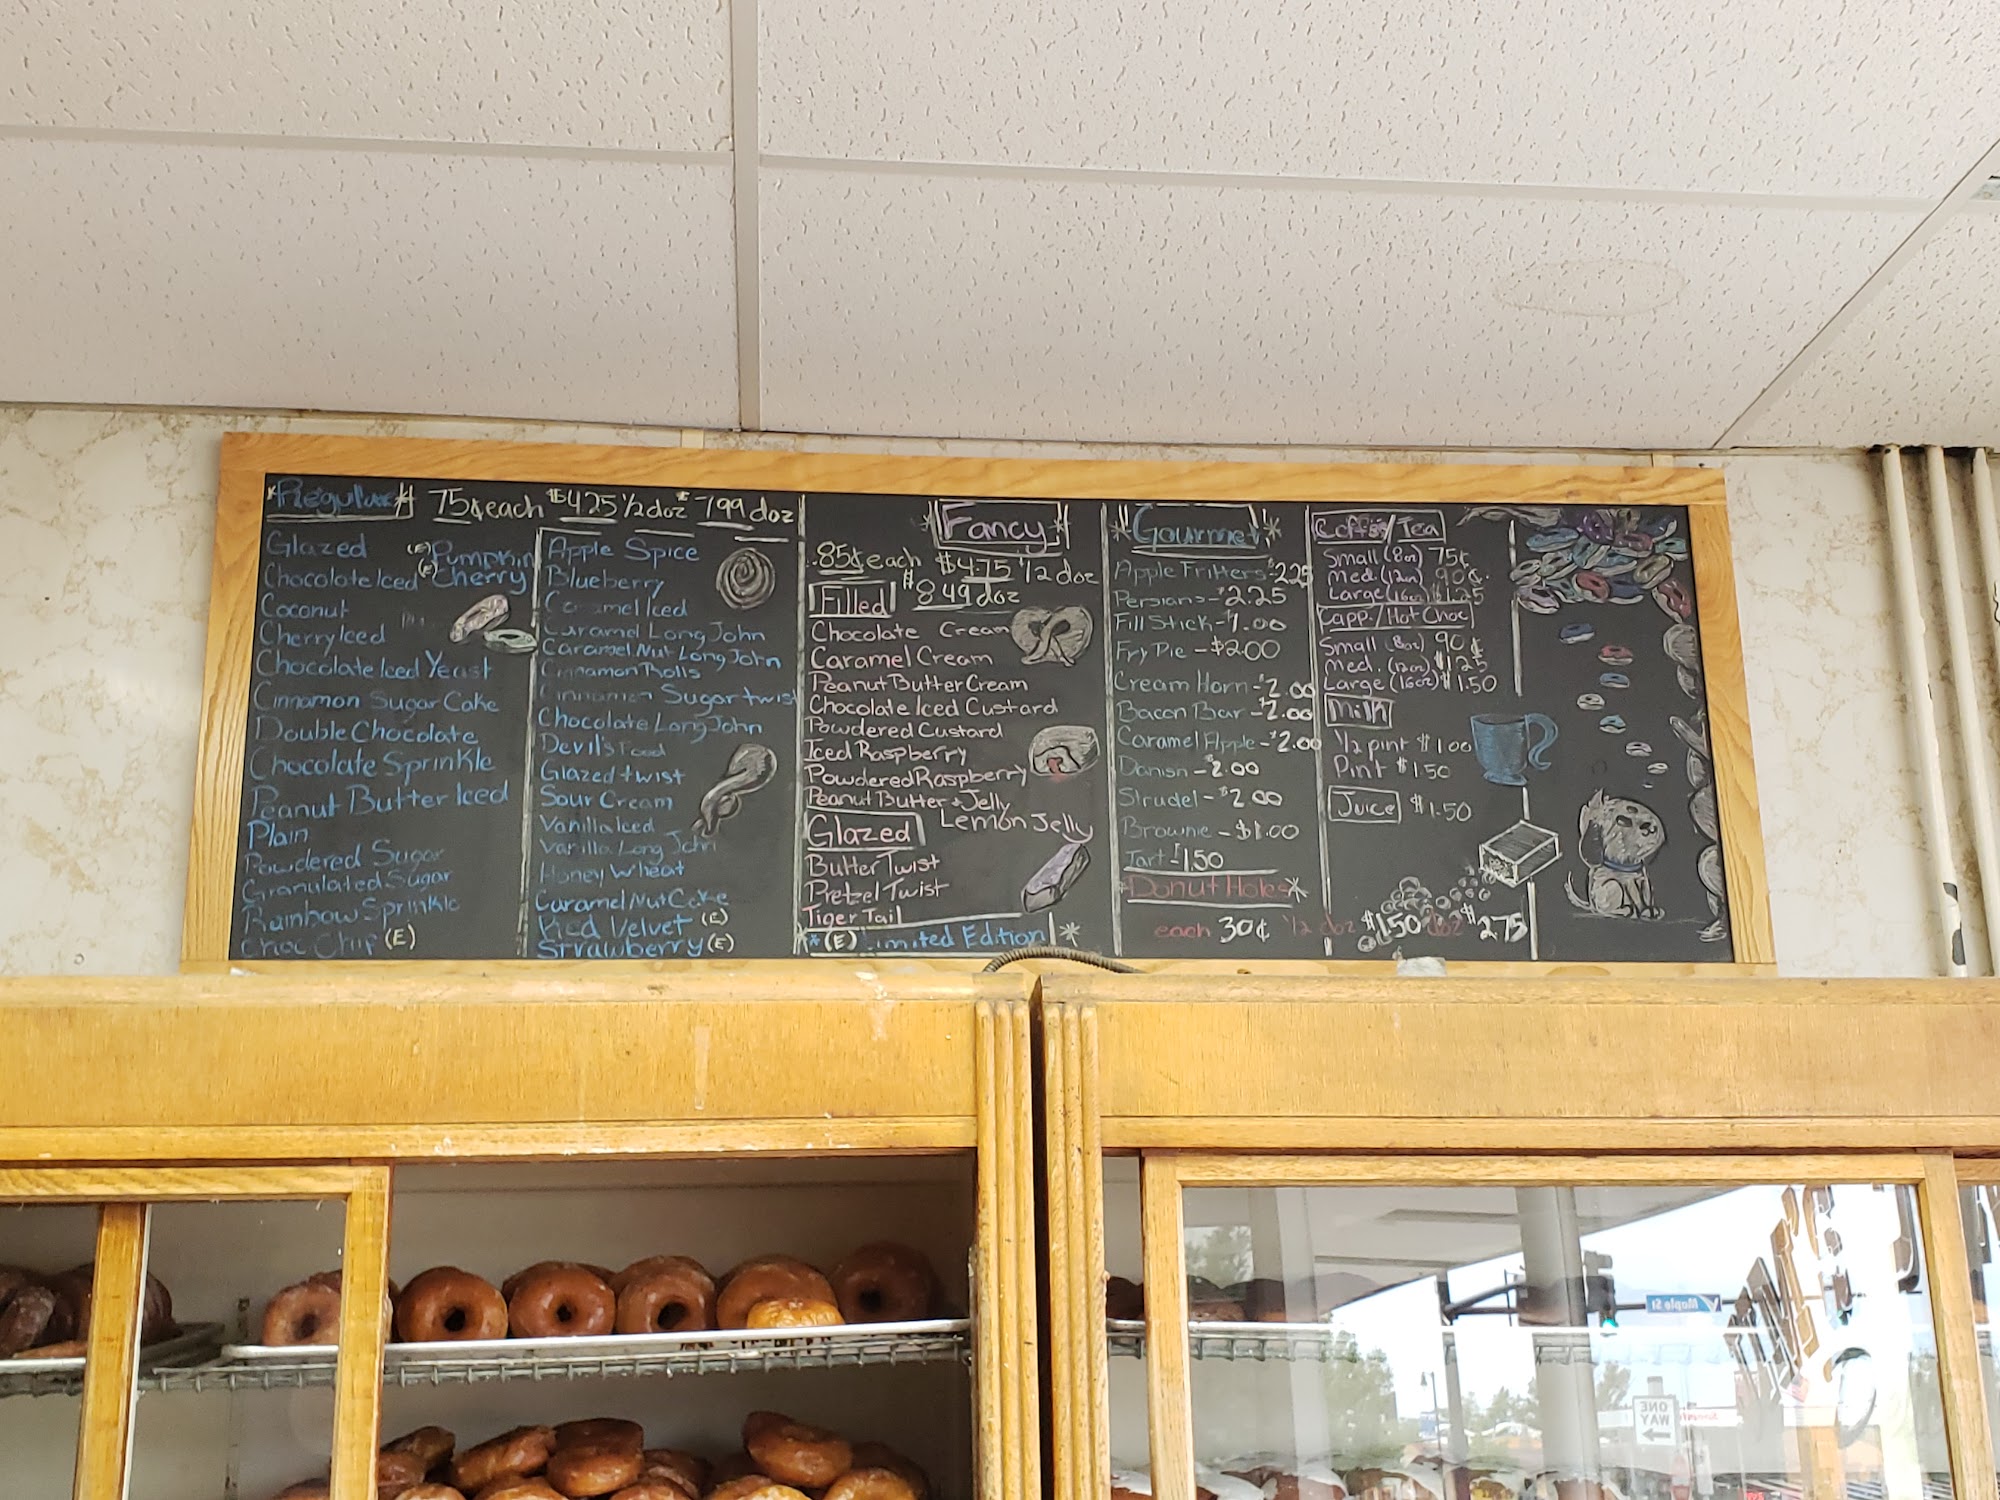 *Regular* 75¢ each $4.25 1/2 doz $7.99 doz
Glazed
Chocolate Iced
Coconut
Cherry Iced
Chocolate Iced Yeast
Cinnamon Sugar Cake
Double Chocolate
Chocolate Sprinkle
Peanut Butter Iced
Plain
Powdered Sugar
Granulated Sugar
Rainbow Sprinkle
Choc Chip (E)
(E) Pumpkin
(E) Cherry
Apple Spice
Blueberry
Caramel Iced
Caramel Long John
Caramel Nut Long John
Cinnamon Rolls
Cinnamon Sugar twist
Chocolate Long John
Devil's Food
Glazed twist
Sour Cream
Vanilla Iced
Vanilla Long John
Honey Wheat
Caramel Nut Cake
Red Velvet (E)
Strawberry (E)
*Fancy*
85¢ each $4.75 1/2 doz
Filled $8.49 doz
Chocolate Cream
Caramel Cream
Peanut Butter Cream
Chocolate Iced Custard
Powdered Custard
Iced Raspberry
Powdered Raspberry
Peanut Butter + Jelly
Lemon Jelly
Glazed
Butter Twist
Pretzel Twist
Tiger Tail
*(E) Limited Edition*
*Gourmet*
Apple Fritters - $2.25
Persians - $2.25
Fill Stick - $1.00
Fry Pie - $2.00
Cream Horn - $2.00
Bacon Bar - $2.00
Caramel Apple - $2.00
Danish - $2.00
Strudel - $2.00
Brownie - $1.00
Tart - 1.50
*Donut Holes*
each 30¢ 1/2 doz $1.50 doz $2.75
Coffee/Tea
Small (8oz) 75¢
Med. (12oz) 90¢
Large (16oz) $1.25
Capp./Hot Choc
Small (8oz) 90¢
Med. (12oz) $1.25
Large (16oz) $1.50
Milk
1/2 pint $1.00
Pint $1.50
Juice $1.50
Maple St
ONE
WAY